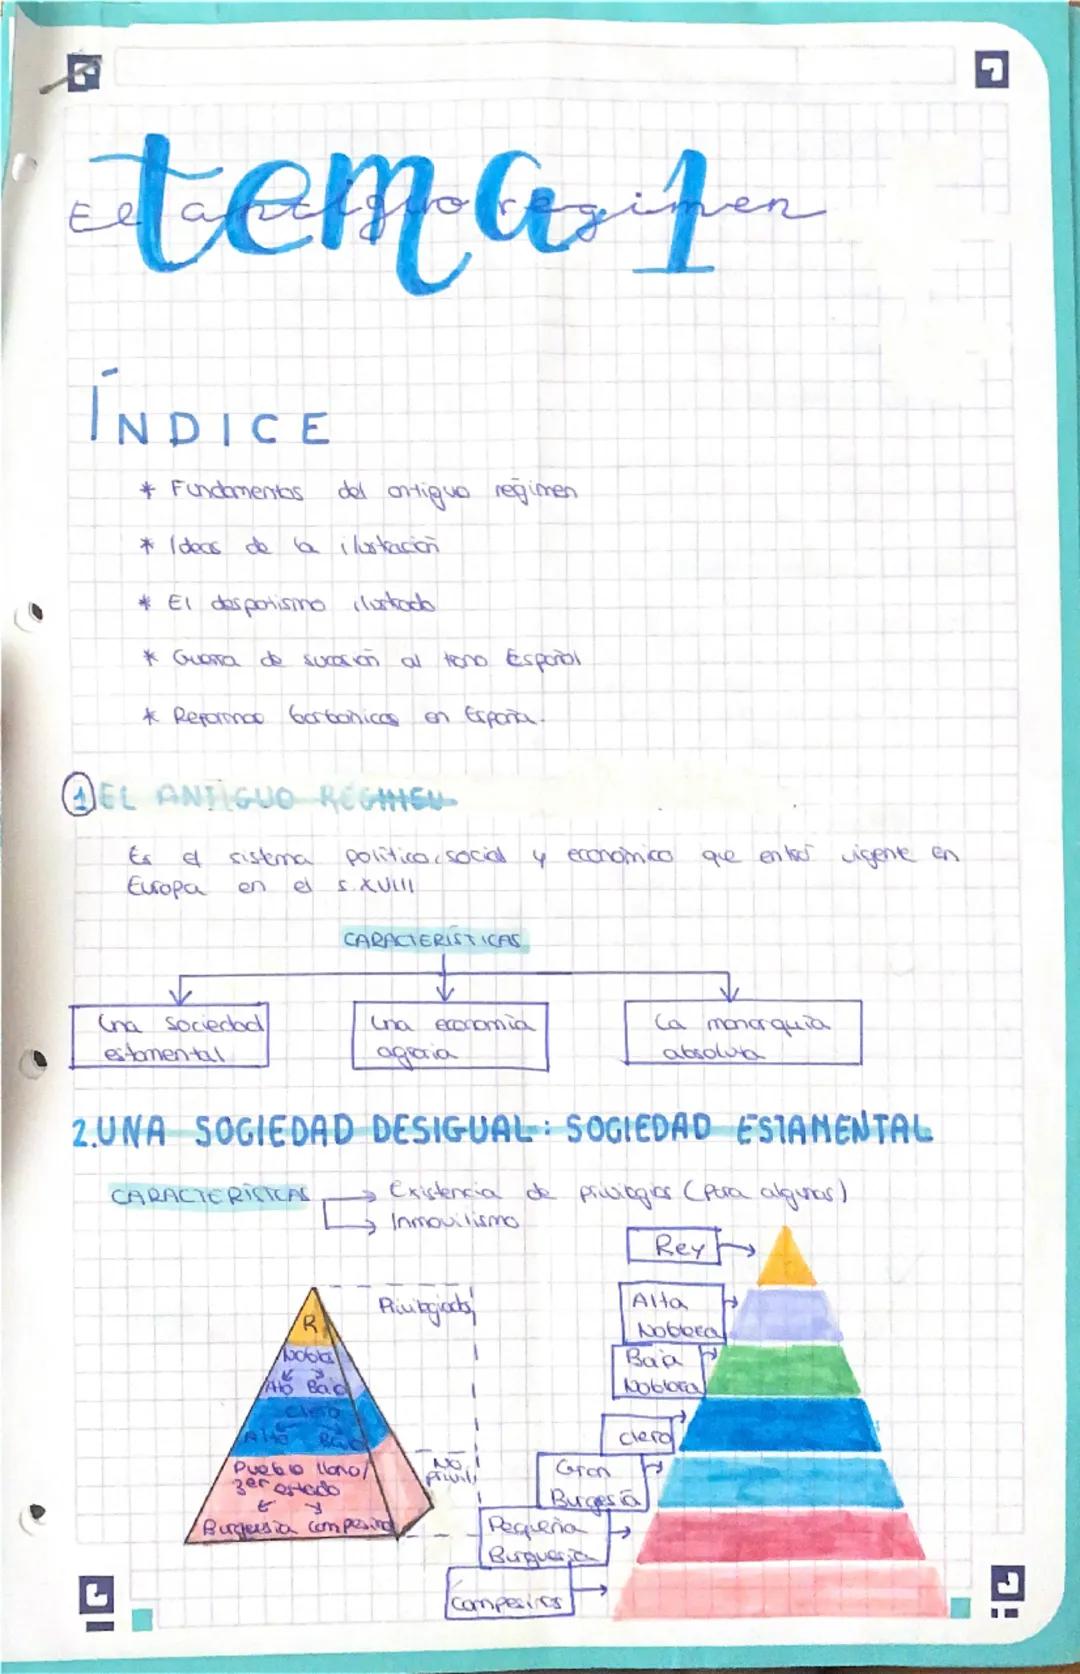 tema 1
El antiguo regimen
ÍNDICE
* Fundamentos del antiguo regimen
* Ideas de la ilustración
* El despotismo ilustrado
* Guerra de sucesión al trono Español
* Reformas borbónicas en España.
1 EL ANTIGUO REGIMEN
Es el sistema político, social y económico que entró vigente en
Europa en el s.XVIII
CARACTERÍSTICAS
Una sociedad
estamental
Una economía
agraria
La monarquía
absoluta
2.UNA SOCIEDAD DESIGUAL: SOCIEDAD ESTAMENTAL
CARACTERÍSTICAS
Existencia de privilegios (para algunos)
Inmovilismo
Privilegiados
R
Nobleza
Alta Baja
Clero
Alto Bajo
Pueblo llano/
3er estado
Burguesia campesino
No
privile
Rey
Alta
Nobleza
Baja
Nobleza
Clero
Gran
Burgesía
Pequeña
Burguesia
Campesinos